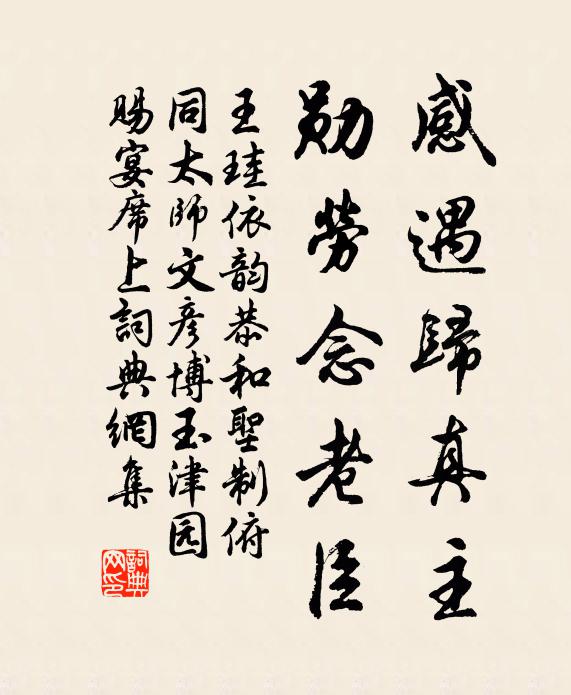 感遇歸真主
勛勞念老臣
王珪依韵恭和聖制俯
同太師文彦博玉津园
賜宴席上詞典網集
詞典网印